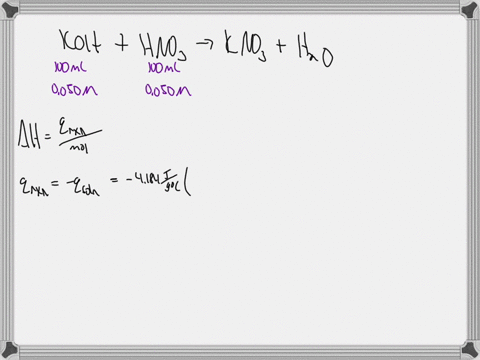 KOH + HNO₃ → KNO₃ + H₂O
100mL 100mL
0.050M 0.050M
ΔH = q rxn / mol
q rxn = -q soln = -4.184 J/g°C (